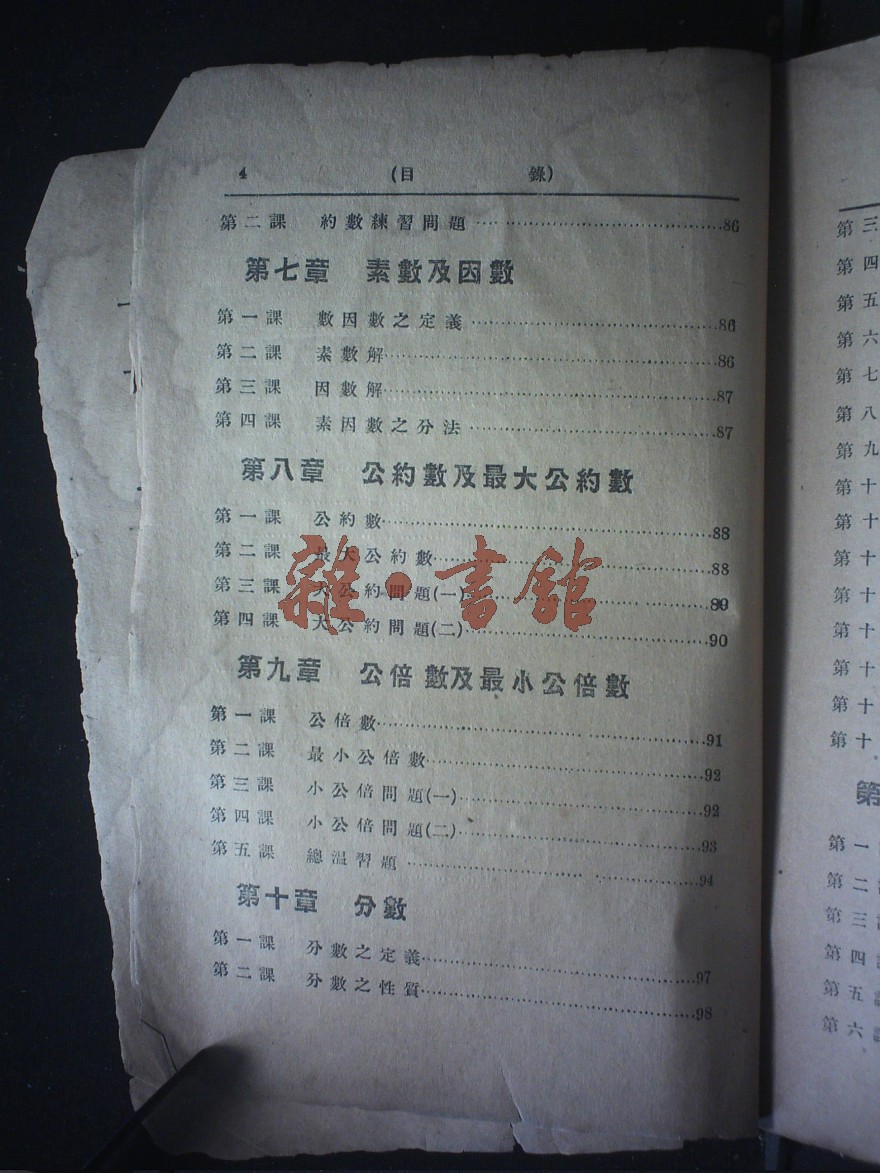 4 (目 錄)
第二課 約數練習問題……86
第七章 素數及因數
第一課 數因數之定義……86
第二課 素數解……86
第三課 因數解……87
第四課 素因數之分法……87
第八章 公約數及最大公約數
第一課 公約數……88
第二課 最大公約數……88
第三課 大公約問題(一)……89
第四課 大公約問題(二)……90
雜·書館
第九章 公倍數及最小公倍數
第一課 公倍數……91
第二課 最小公倍數……92
第三課 小公倍問題(一)……92
第四課 小公倍問題(二)……93
第五課 總温習題……94
第十章 分數
第一課 分數之定義……97
第二課 分數之性質……98
第三
第四
第五
第六
第七
第八
第九
第十
第十
第十
第十
第十
第十
第十
第十
第
第一
第二
第三
第四
第五
第六